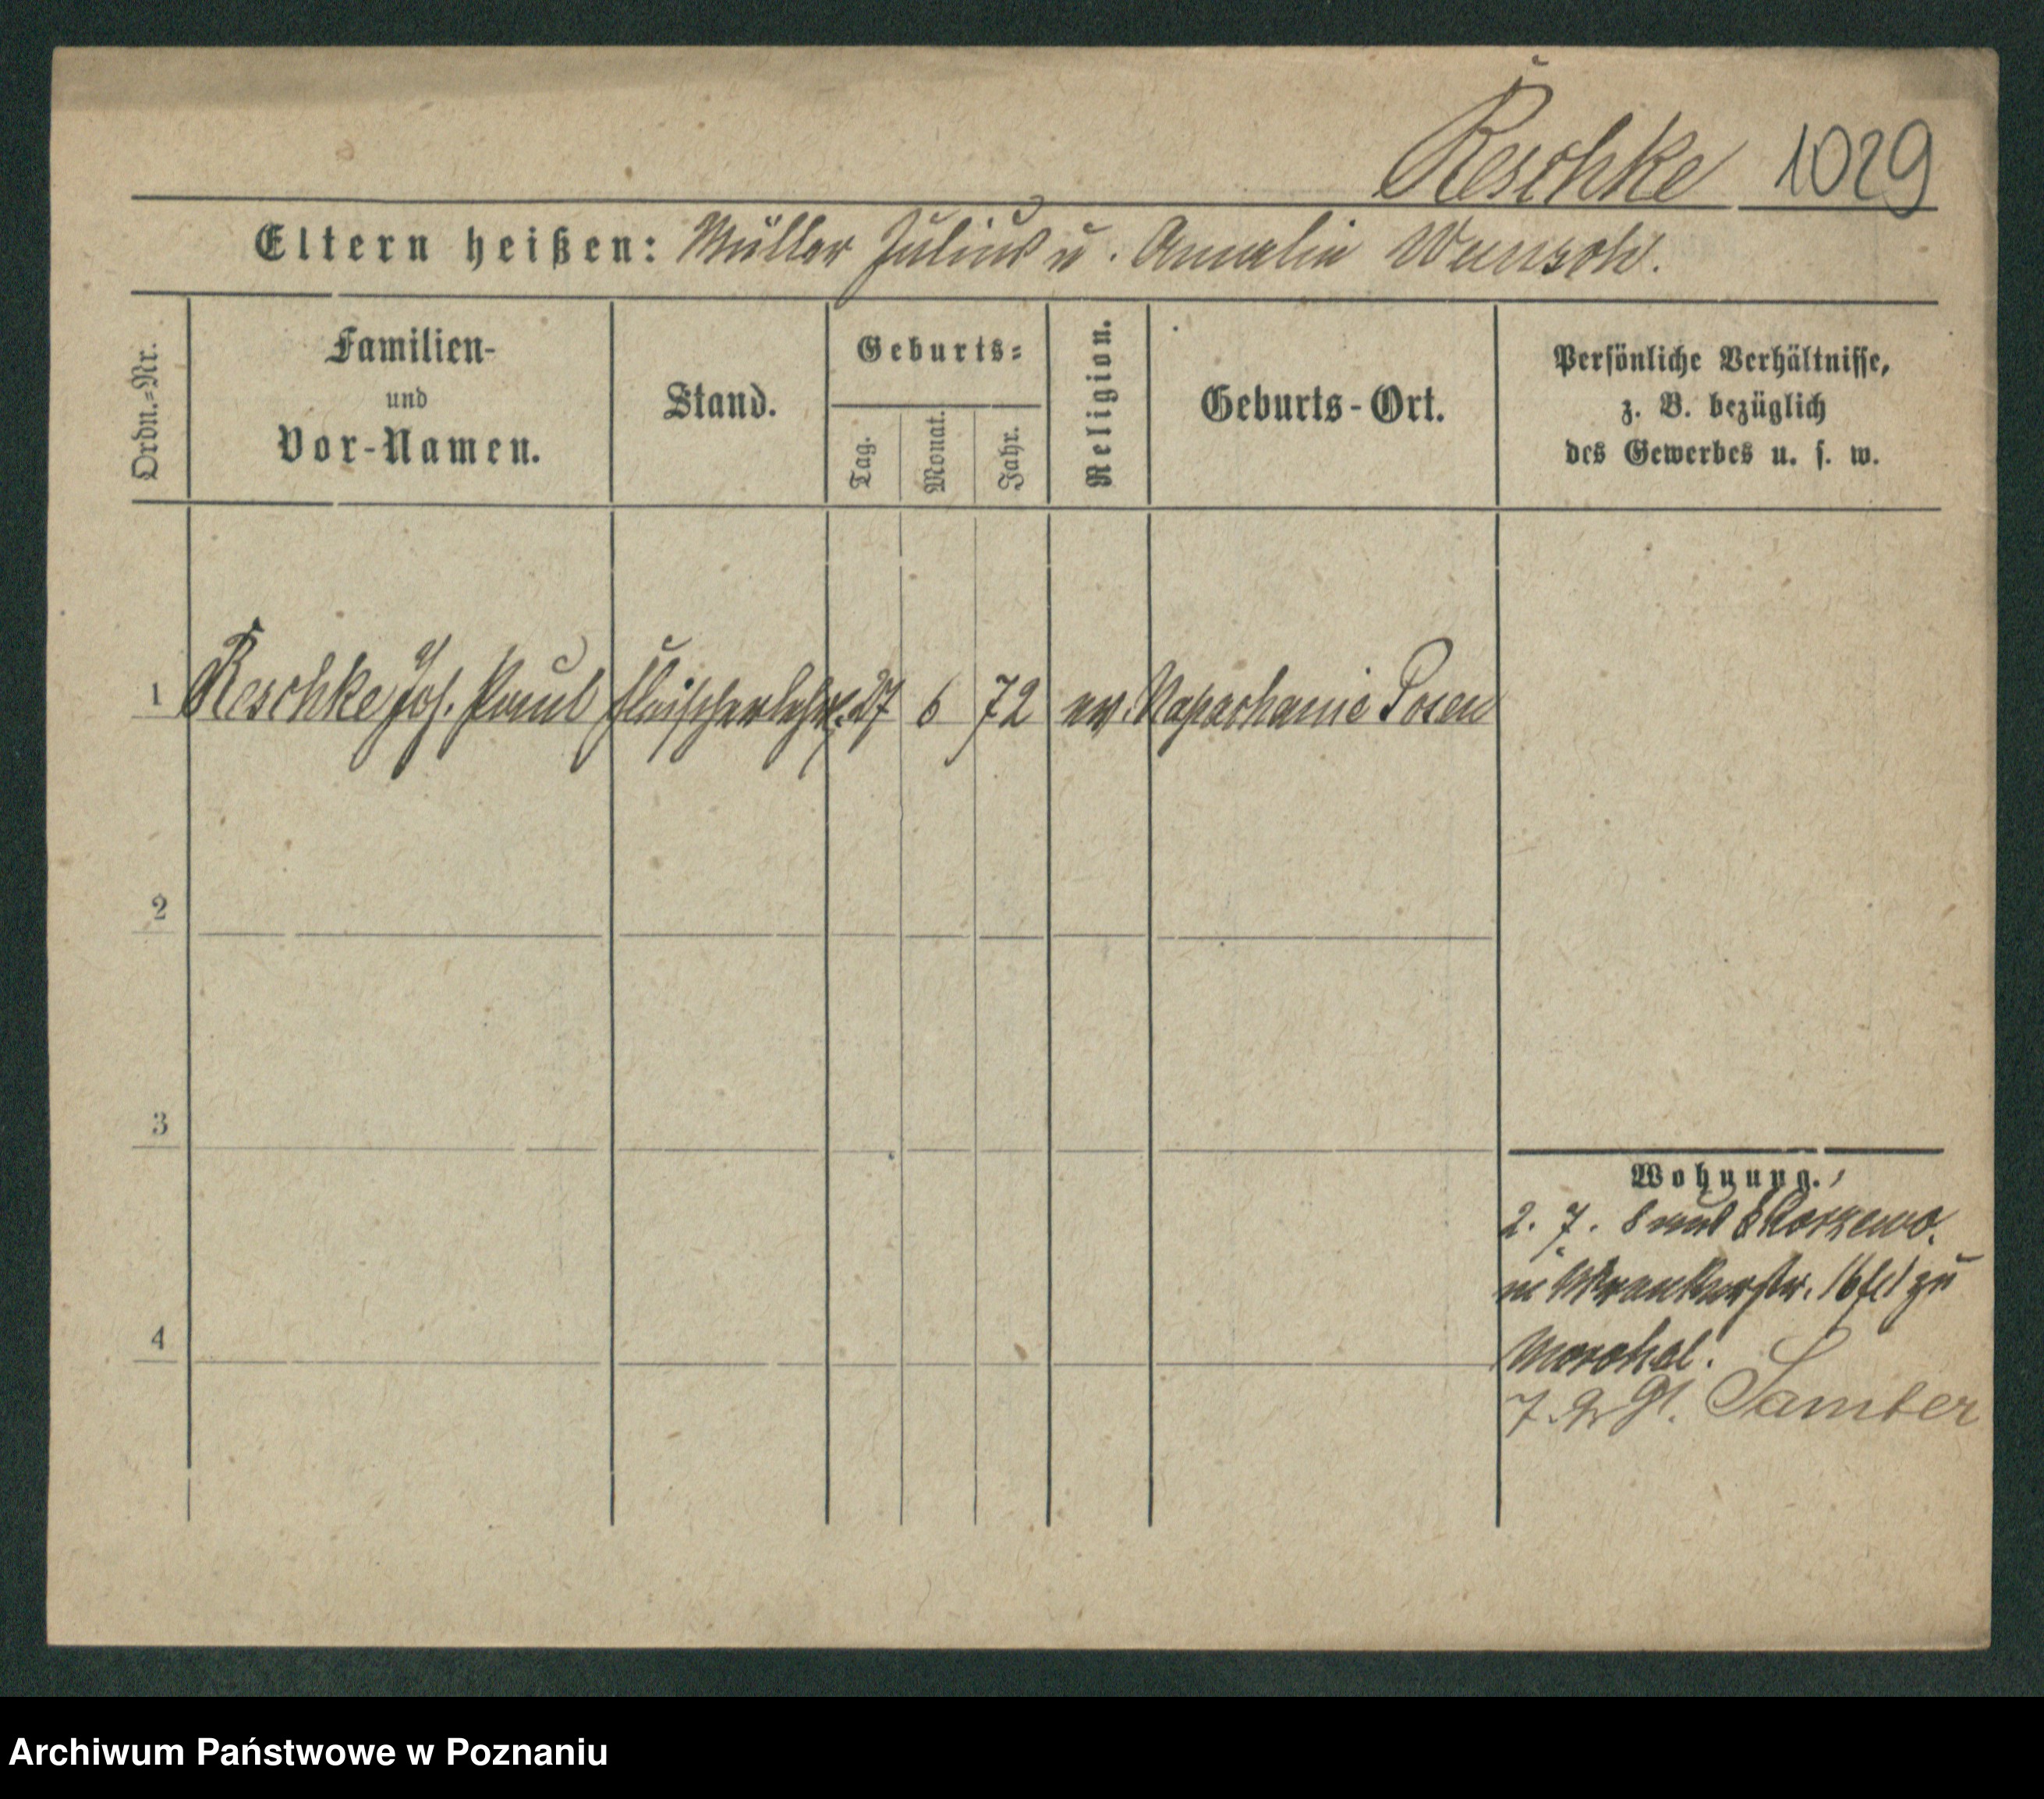 Reschke 1029
Eltern heißen: Müller Julius u. Amalie Wunsch.
Ordn.=Nr.
Familien-
und
Vor-Namen.
Stand.
Geburts=
Tag.
Monat.
Jahr.
Religion.
Geburts-Ort.
Persönliche Verhältnisse,
z. B. bezüglich
des Gewerbes u. s. w.
1 Reschke Joh. Paul Fleischerlehrl. 27 6 72 ev. Napachanie Posen
2
3
Wohnung.
2. 7. Skorzewo.
16 zu
4
7. 2 91. Samter
Archiwum Państwowe w Poznaniu